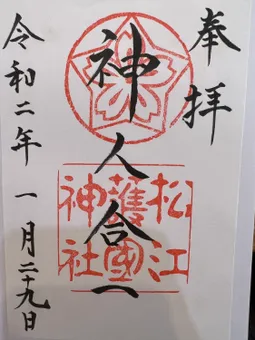 奉拝
神人合一
松江
護國
神社
令和二年一月二十九日